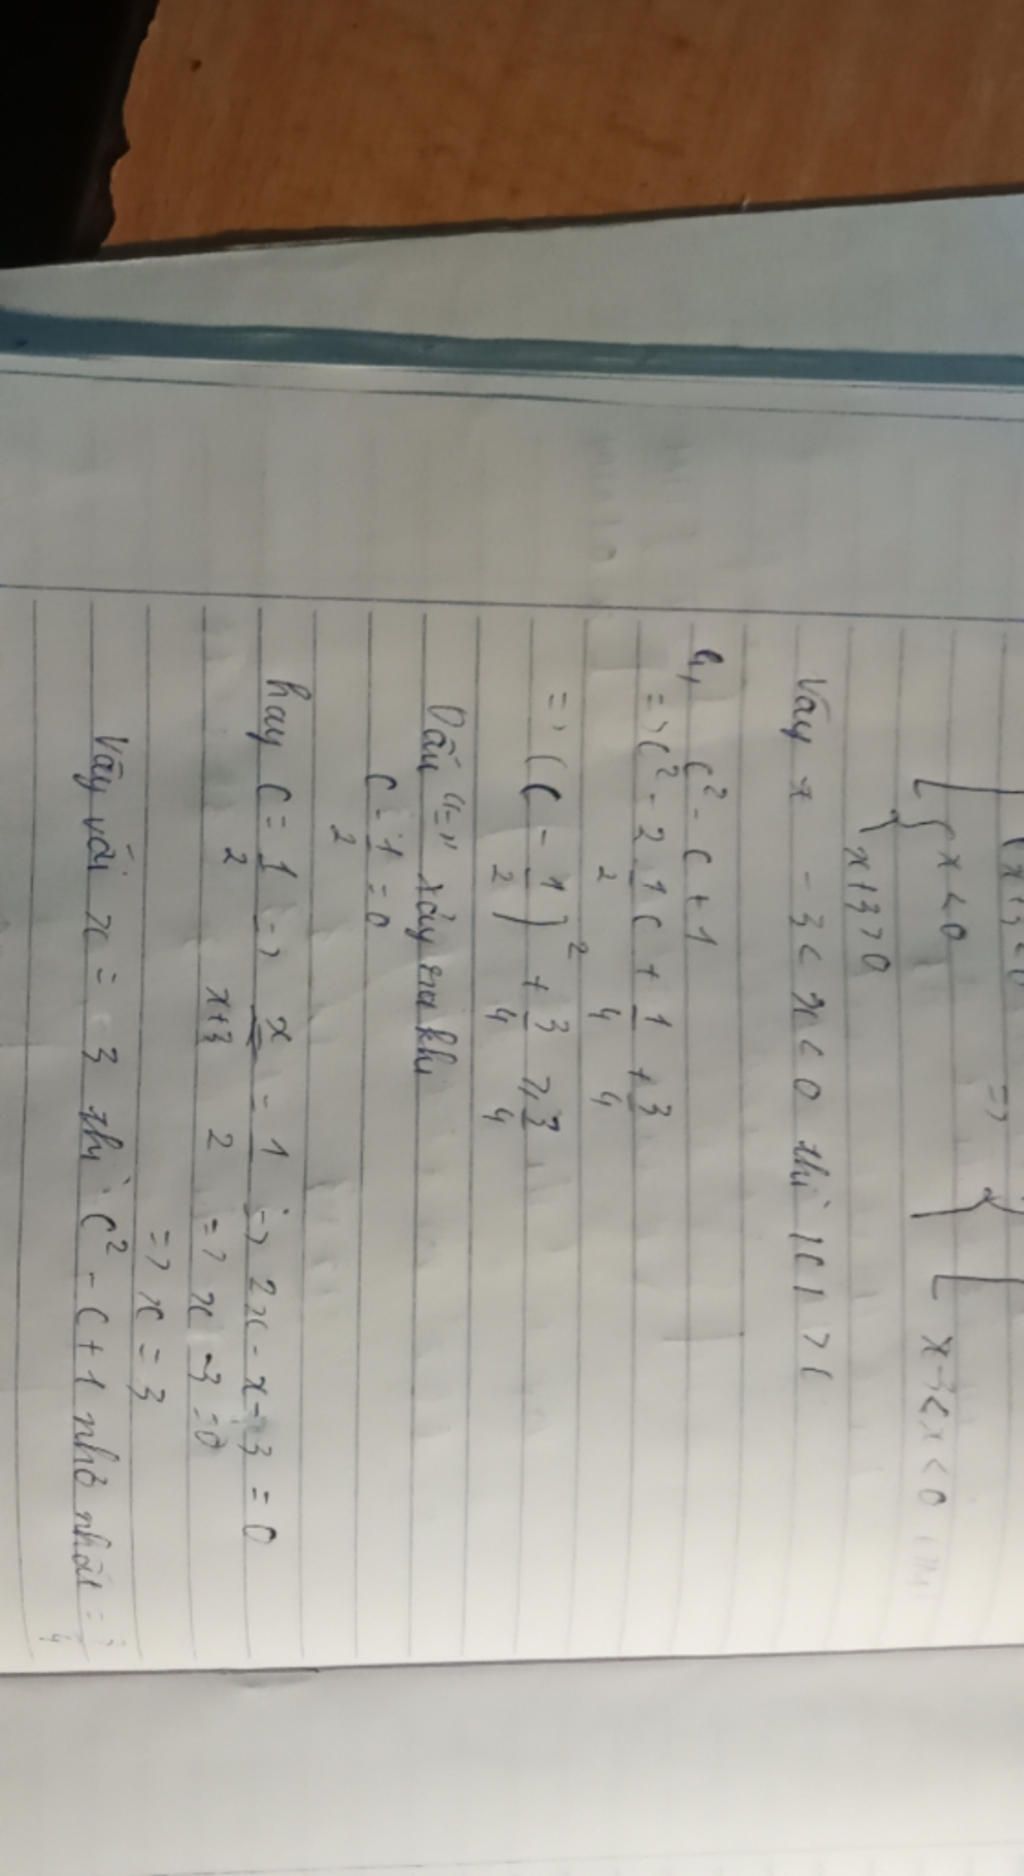 { x < 0
x+3 > 0
=>
x-3<x < 0
Vậy x -3 < x < 0 thì |C| > C
4, C² - C + 1
=> C² - 2 1/2 C + 1/4 + 3/4
=> (C - 1/2)² + 3/4 ≥ 3/4
Dấu "=" xảy ra khi
C - 1/2 = 0
hay C = 1/2 -> x/x+3 = 1/2 -> 2x - x - 3 = 0
=> x - 3 = 0
=> x = 3
Vậy với x = 3 thì C² - C + 1 nhỏ nhất = 3/4